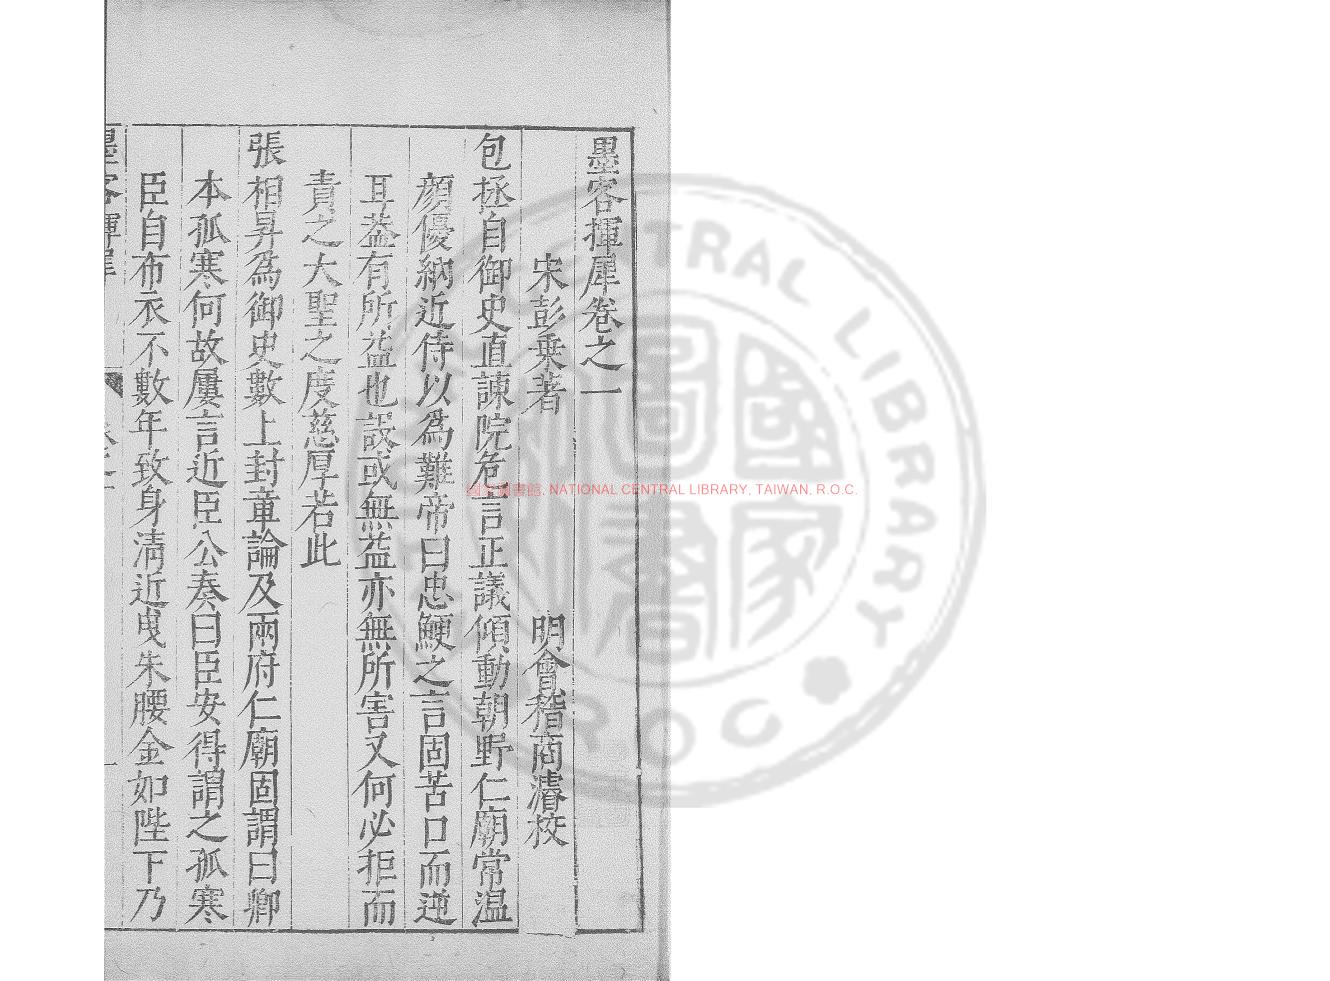 墨客揮犀卷之一
宋彭乗著 明會稽商濬校
包拯自御史直諫院危言正議傾動朝野仁廟常温
顔優納近侍以爲難帝曰忠鯁之言固苦口而逆
耳葢有所益也設或無益亦無所害又何必拒而
責之大聖之度慈厚若此
張相昇爲御史數上封章論及兩府仁廟固謂曰卿
本孤寒何故屢言近臣公奏曰臣安得謂之孤寒
臣自布衣不數年致身清近曳朱腰金如陛下乃
墨客揮犀
國家圖書館, NATIONAL CENTRAL LIBRARY, TAIWAN, R.O.C.